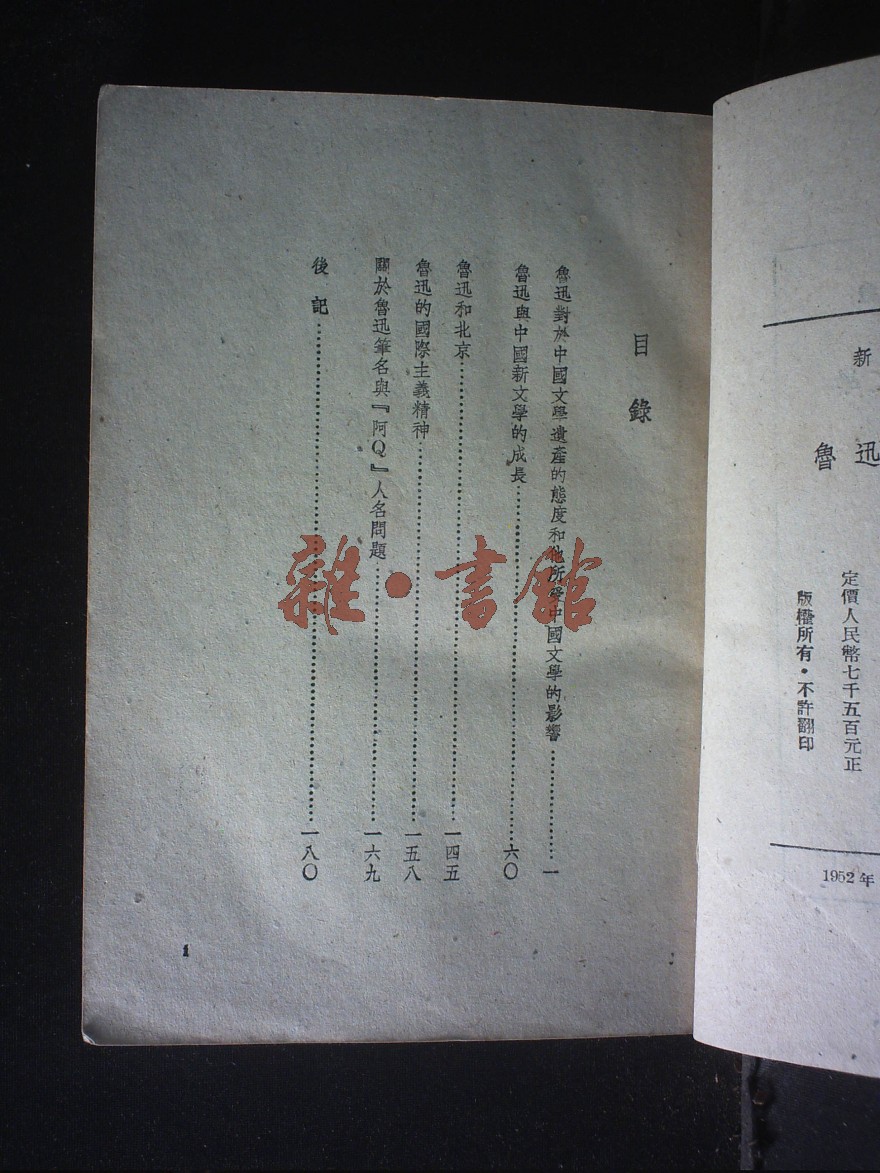 新
魯迅
定價人民幣七千五百元正
版權所有·不許翻印
1952年
目錄
魯迅對於中國文學遺產的態度和他所受中國文學的影響……一
魯迅與中國新文學的成長……六〇
魯迅和北京……一四五
魯迅的國際主義精神……一五八
關於魯迅筆名與『阿Q』人名問題……一六九
後記……一八〇
1
雜·書館